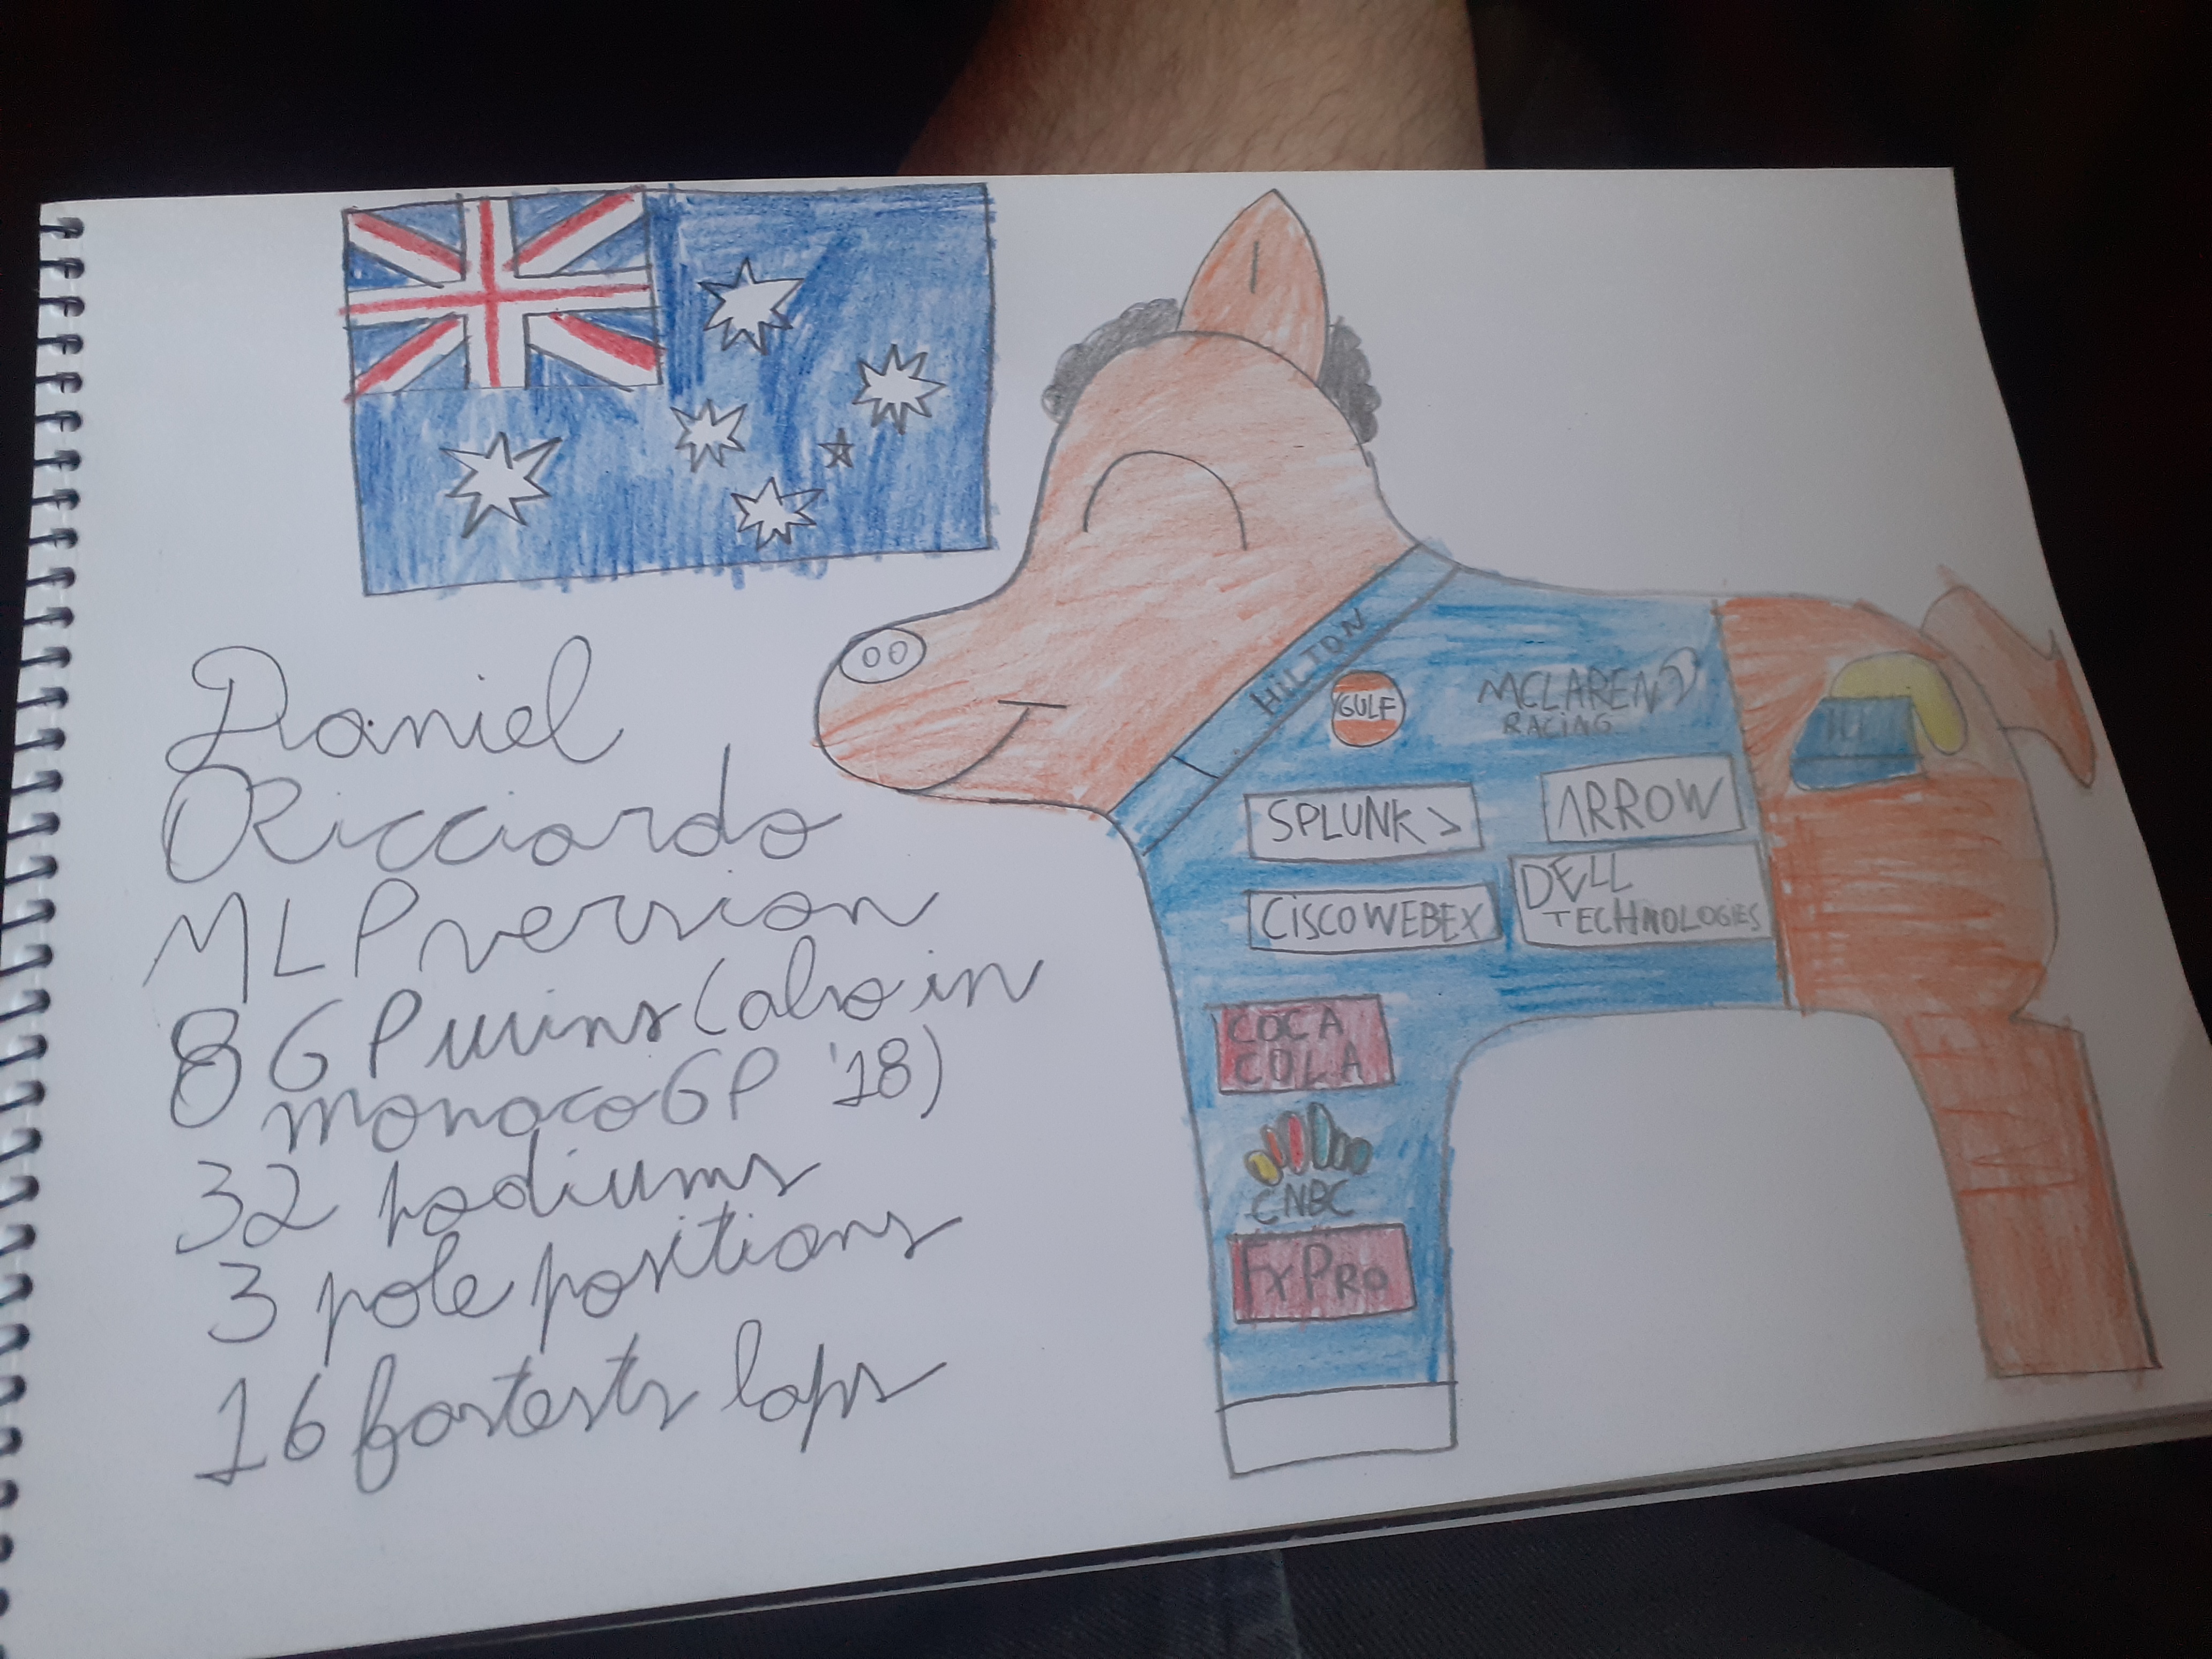 Daniel
Ricciardo
MLP version
8 GP wins (also in
monaco GP '18)
32 podiums
3 pole positions
16 fastests laps
HILTON
GULF
MCLAREN
RACING
SPLUNK >
ARROW
CISCO WEBEX
DELL
TECHNOLOGIES
COCA
COLA
CNBC
FxPRO